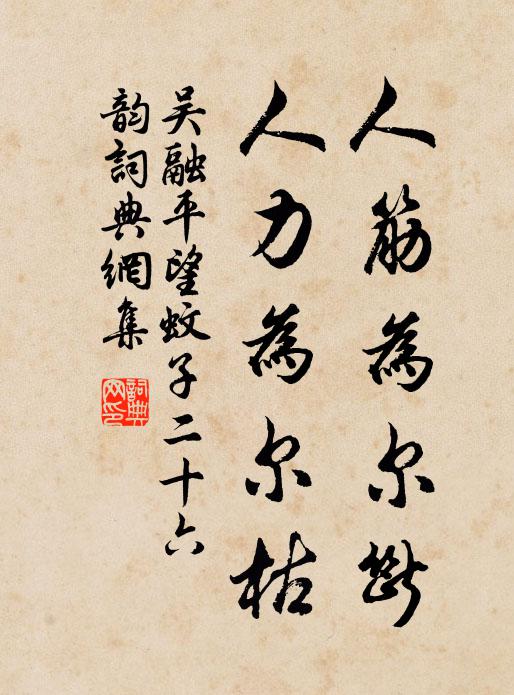 人筋為尔斷
人力為尔枯
吴融平望蚊子二十六
韵詞典網集
詞典
网印